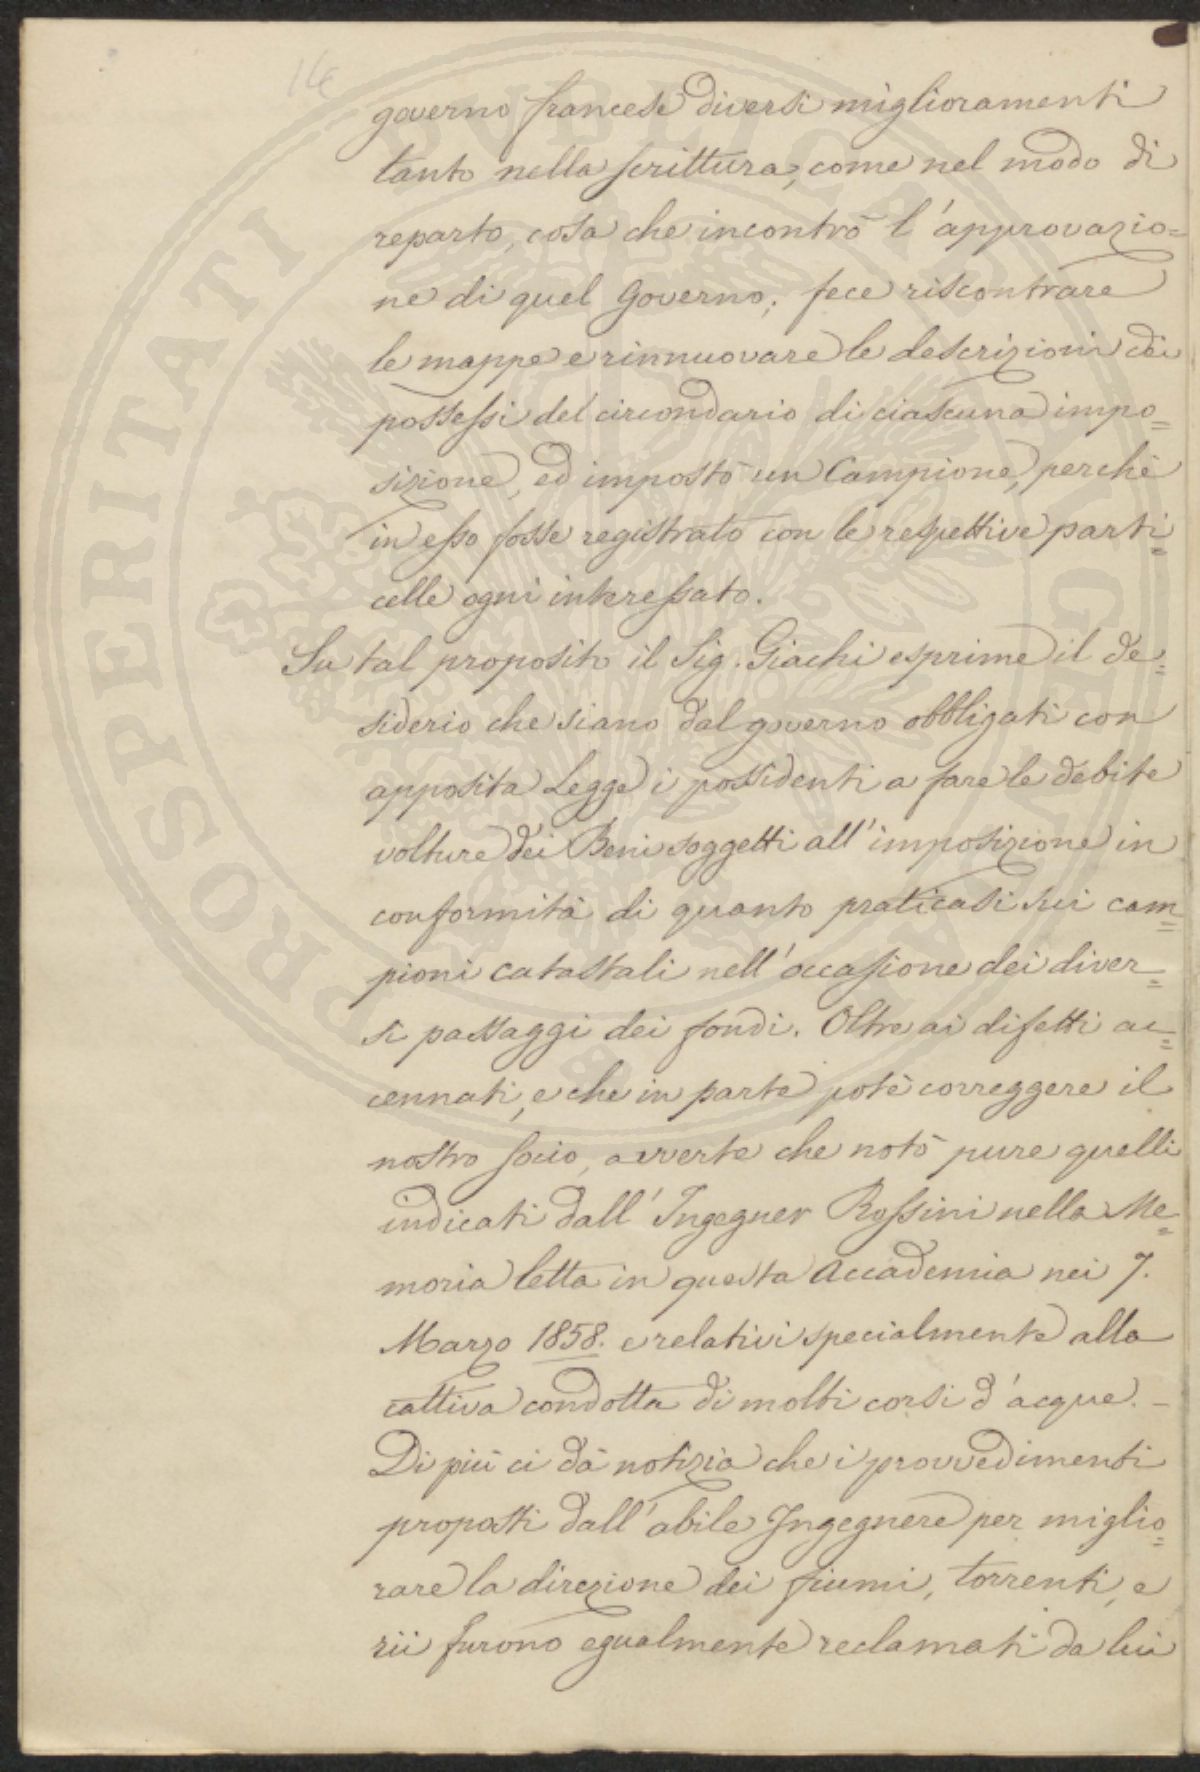 14
governo francese diversi miglioramenti
tanto nella scrittura, come nel modo di
reparto, cosa che incontrò l'approvazio=
ne di quel Governo; fece riscontrare
le mappe e rinnuovare le descrizioni dei
possessi del circondario di ciascuna impo=
sizione, ed impostò un Campione, perchè
in esso fosse registrato con le respettive parti=
celle ogni interessato.
Su tal proposito il Sig. Giachi esprime il de=
siderio che siano dal governo obbligati con
apposita Legge i possidenti a fare le debite
volture dei Beni soggetti all'imposizione in
conformità di quanto praticasi sui cam=
pioni catastali nell'occasione dei diver=
si passaggi dei fondi. Oltre ai difetti ac=
cennati, e che in parte potè correggere il
nostro socio, avverte che notò pure quelli
indicati dall'Ingegner Rossini nella Me=
moria letta in questa Accademia nei 7.
Marzo 1858. e relativi specialmente alla
cattiva condotta di molti corsi d'acque. –
Di più ci dà notizia che i provvedimenti
proposti dall'abile Ingegnere per miglio=
rare la direzione dei fiumi, torrenti, e
rii furono egualmente reclamati da lui
PROSPERITATI PUBLICAE AUGENDAE